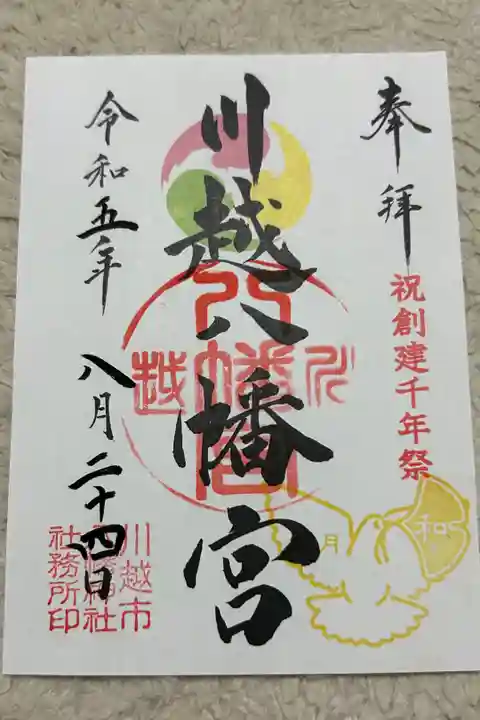 奉拝
祝創建千年祭
川越八幡宮
令和五年
八月二十四日
川越
八幡宮
和
月
川越市
八幡神社
社務所印